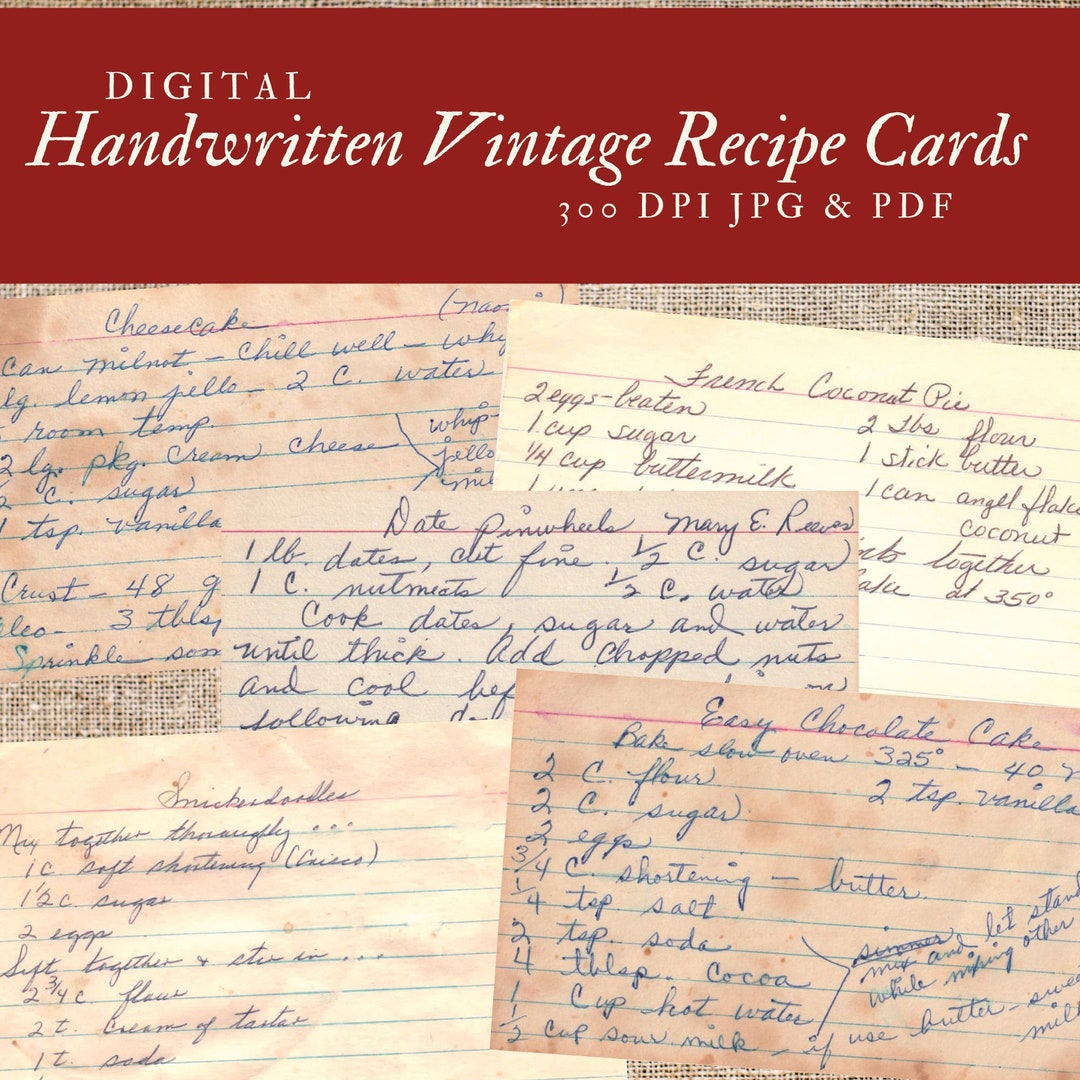 DIGITAL
Handwritten Vintage Recipe Cards
300 DPI JPG & PDF
Cheesecake
Can milnot – Chill well –
lg. lemon jello – 2 C. water
room temp.
2 lg. pkg. Cream cheese
whip
jello
mil
C. sugar
1 tsp. vanilla
Crust – 48 g
3 tbls
Sprinkle som
French Coconut Pie
2 eggs - beaten
1 cup sugar
1/4 cup buttermilk
2 Tbs flour
1 stick butter
1 can angel flake
coconut
together
at 350°
Date Pinwheels Mary E. Reeves
1 lb. dates, cut fine. 1/2 C. sugar
1 C. nutmeats 1/2 C. water
Cook dates, sugar and water
until thick. Add chopped nuts
and cool bef
following
Snickerdoodles
Mix together thoroughly ...
1 c. soft shortening (Crisco)
1 1/2 c. sugar
2 eggs
Sift together & stir in ...
2 3/4 c. flour
2 t. cream of tartar
1 t. soda
Easy Chocolate Cake
Bake slow oven 325° – 40
2 C. flour
2 tsp. vanilla
2 C. sugar
2 eggs
3/4 C. shortening – butter
1/4 tsp salt
2 tsp. soda
4 tblsp. Cocoa
1 Cup hot water
simmer
mix and let stand
while mixing other
1/2 cup sour milk – if use butter – swee
milk